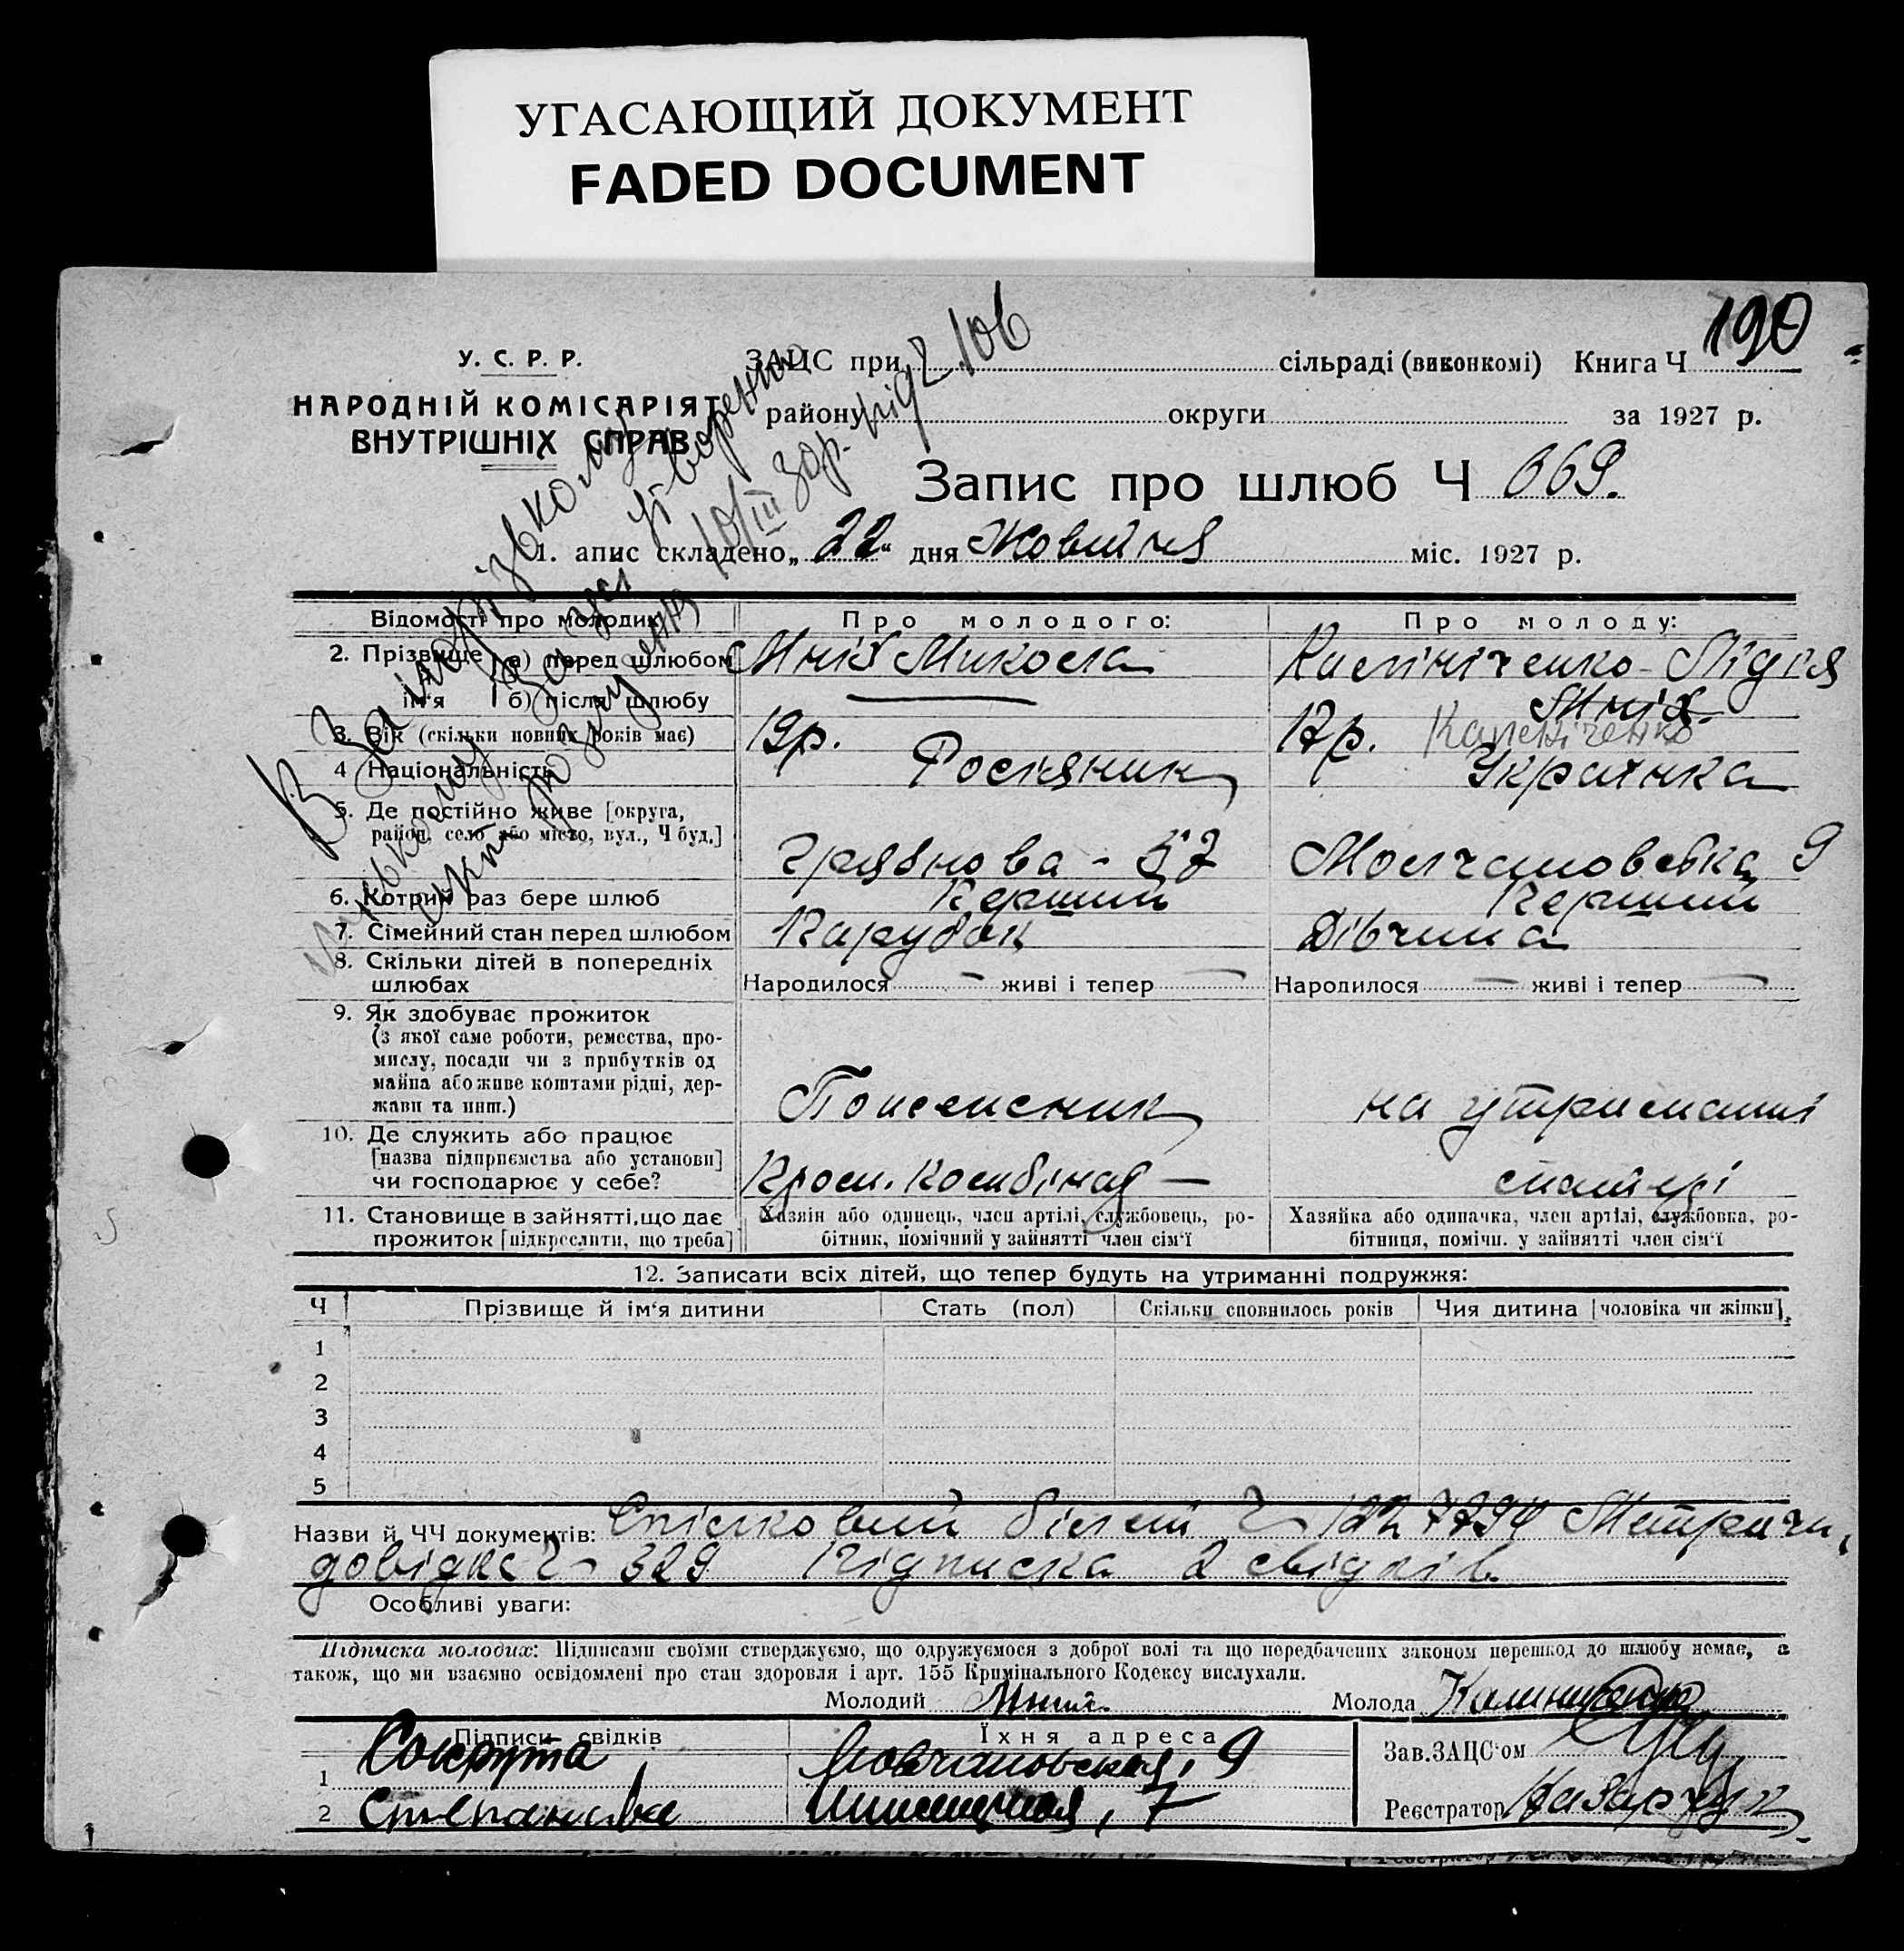 УГАСАЮЩИЙ ДОКУМЕНТ
FADED DOCUMENT
190
У. С. Р. Р.
НАРОДНІЙ КОМІСАРІЯТ
ВНУТРІШНІХ СПРАВ
ЗАЦС при сільраді (виконкомі) Книга Ч
району округи за 1927 р.
Запис про шлюб Ч 669.
1. апис складено „22“ дня Жовтня міс. 1927 р.
Відомості про молодих Про молодого: Про молоду:
2. Прізвище й ім‘я а) перед шлюбом Мніх Микола Калініченко - Лідія
б) після шлюбу Мніх
3. Вік (скільки повних років має) 19р. 17р. Калениченко
4 Національність Росіянин Українка
5. Де постійно живе [округа,
район, село або місто, вул., Ч буд.] Грязнова - 57 Молчановська 9
6. Котрий раз бере шлюб Перший Перший
7. Сімейний стан перед шлюбом Парубок Дівчина
8. Скільки дітей в попередніх
шлюбах Народилося — живі і тепер — Народилося — живі і тепер —
9. Як здобуває прожиток
(з якої саме роботи, ремества, про-
мислу, посади чи з прибутків од
майна або живе коштами рідні, дер-
жави та инш.) на утриманні
10. Де служить або працює
[назва підприємства або установи]
чи господарює у себе? Пром. Комбінад — матері
11. Становище в зайнятті, що дає Хазяін або одинець, член артілі, службовець, ро- Хазяйка або одиначка, член артілі, службовка, ро-
прожиток [підкреслити, що треба] бітник, помічний у зайнятті член сім‘ї бітниця, помічн. у зайнятті член сім‘ї
12. Записати всіх дітей, що тепер будуть на утриманні подружжя:
Ч Прізвище й ім‘я дитини Стать (пол) Скільки сповнилось років Чия дитина [чоловіка чи жінки]
1
2
3
4
5
Назви й ЧЧ документів: Спілковий білет Ч 1227794 Метрични
довідка Ч 329 Підписка 2 свідків
Особливі уваги:
Підписка молодих: Підписами своїми стверджуємо, що одружуємося з доброї волі та що передбачених законом перешкод до шлюбу немає, а
також, що ми взаємно освідомлені про стан здоровля і арт. 155 Кримінального Кодексу вислухали.
Молодий Мних Молода Калиниченко
Підписи свідків Їхня адреса
1 Молчановская, 9 Зав. ЗАЦС‘ом
2 7 Реєстратор